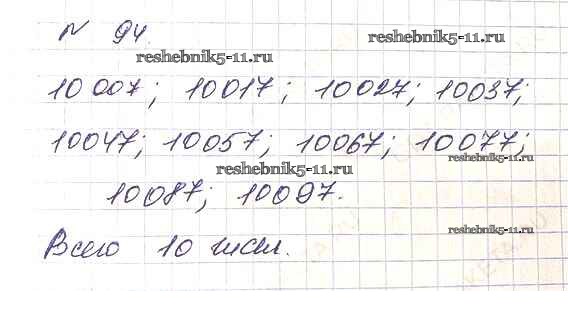 № 94.
reshebnik5-11.ru
reshebnik5-11.ru
10007; 10017; 10027; 10037;
10047; 10057; 10067; 10077;
reshebnik5-11.ru
reshebnik5-11.ru
10087; 10097.
reshebnik5-11.ru
Всего 10 чисел.